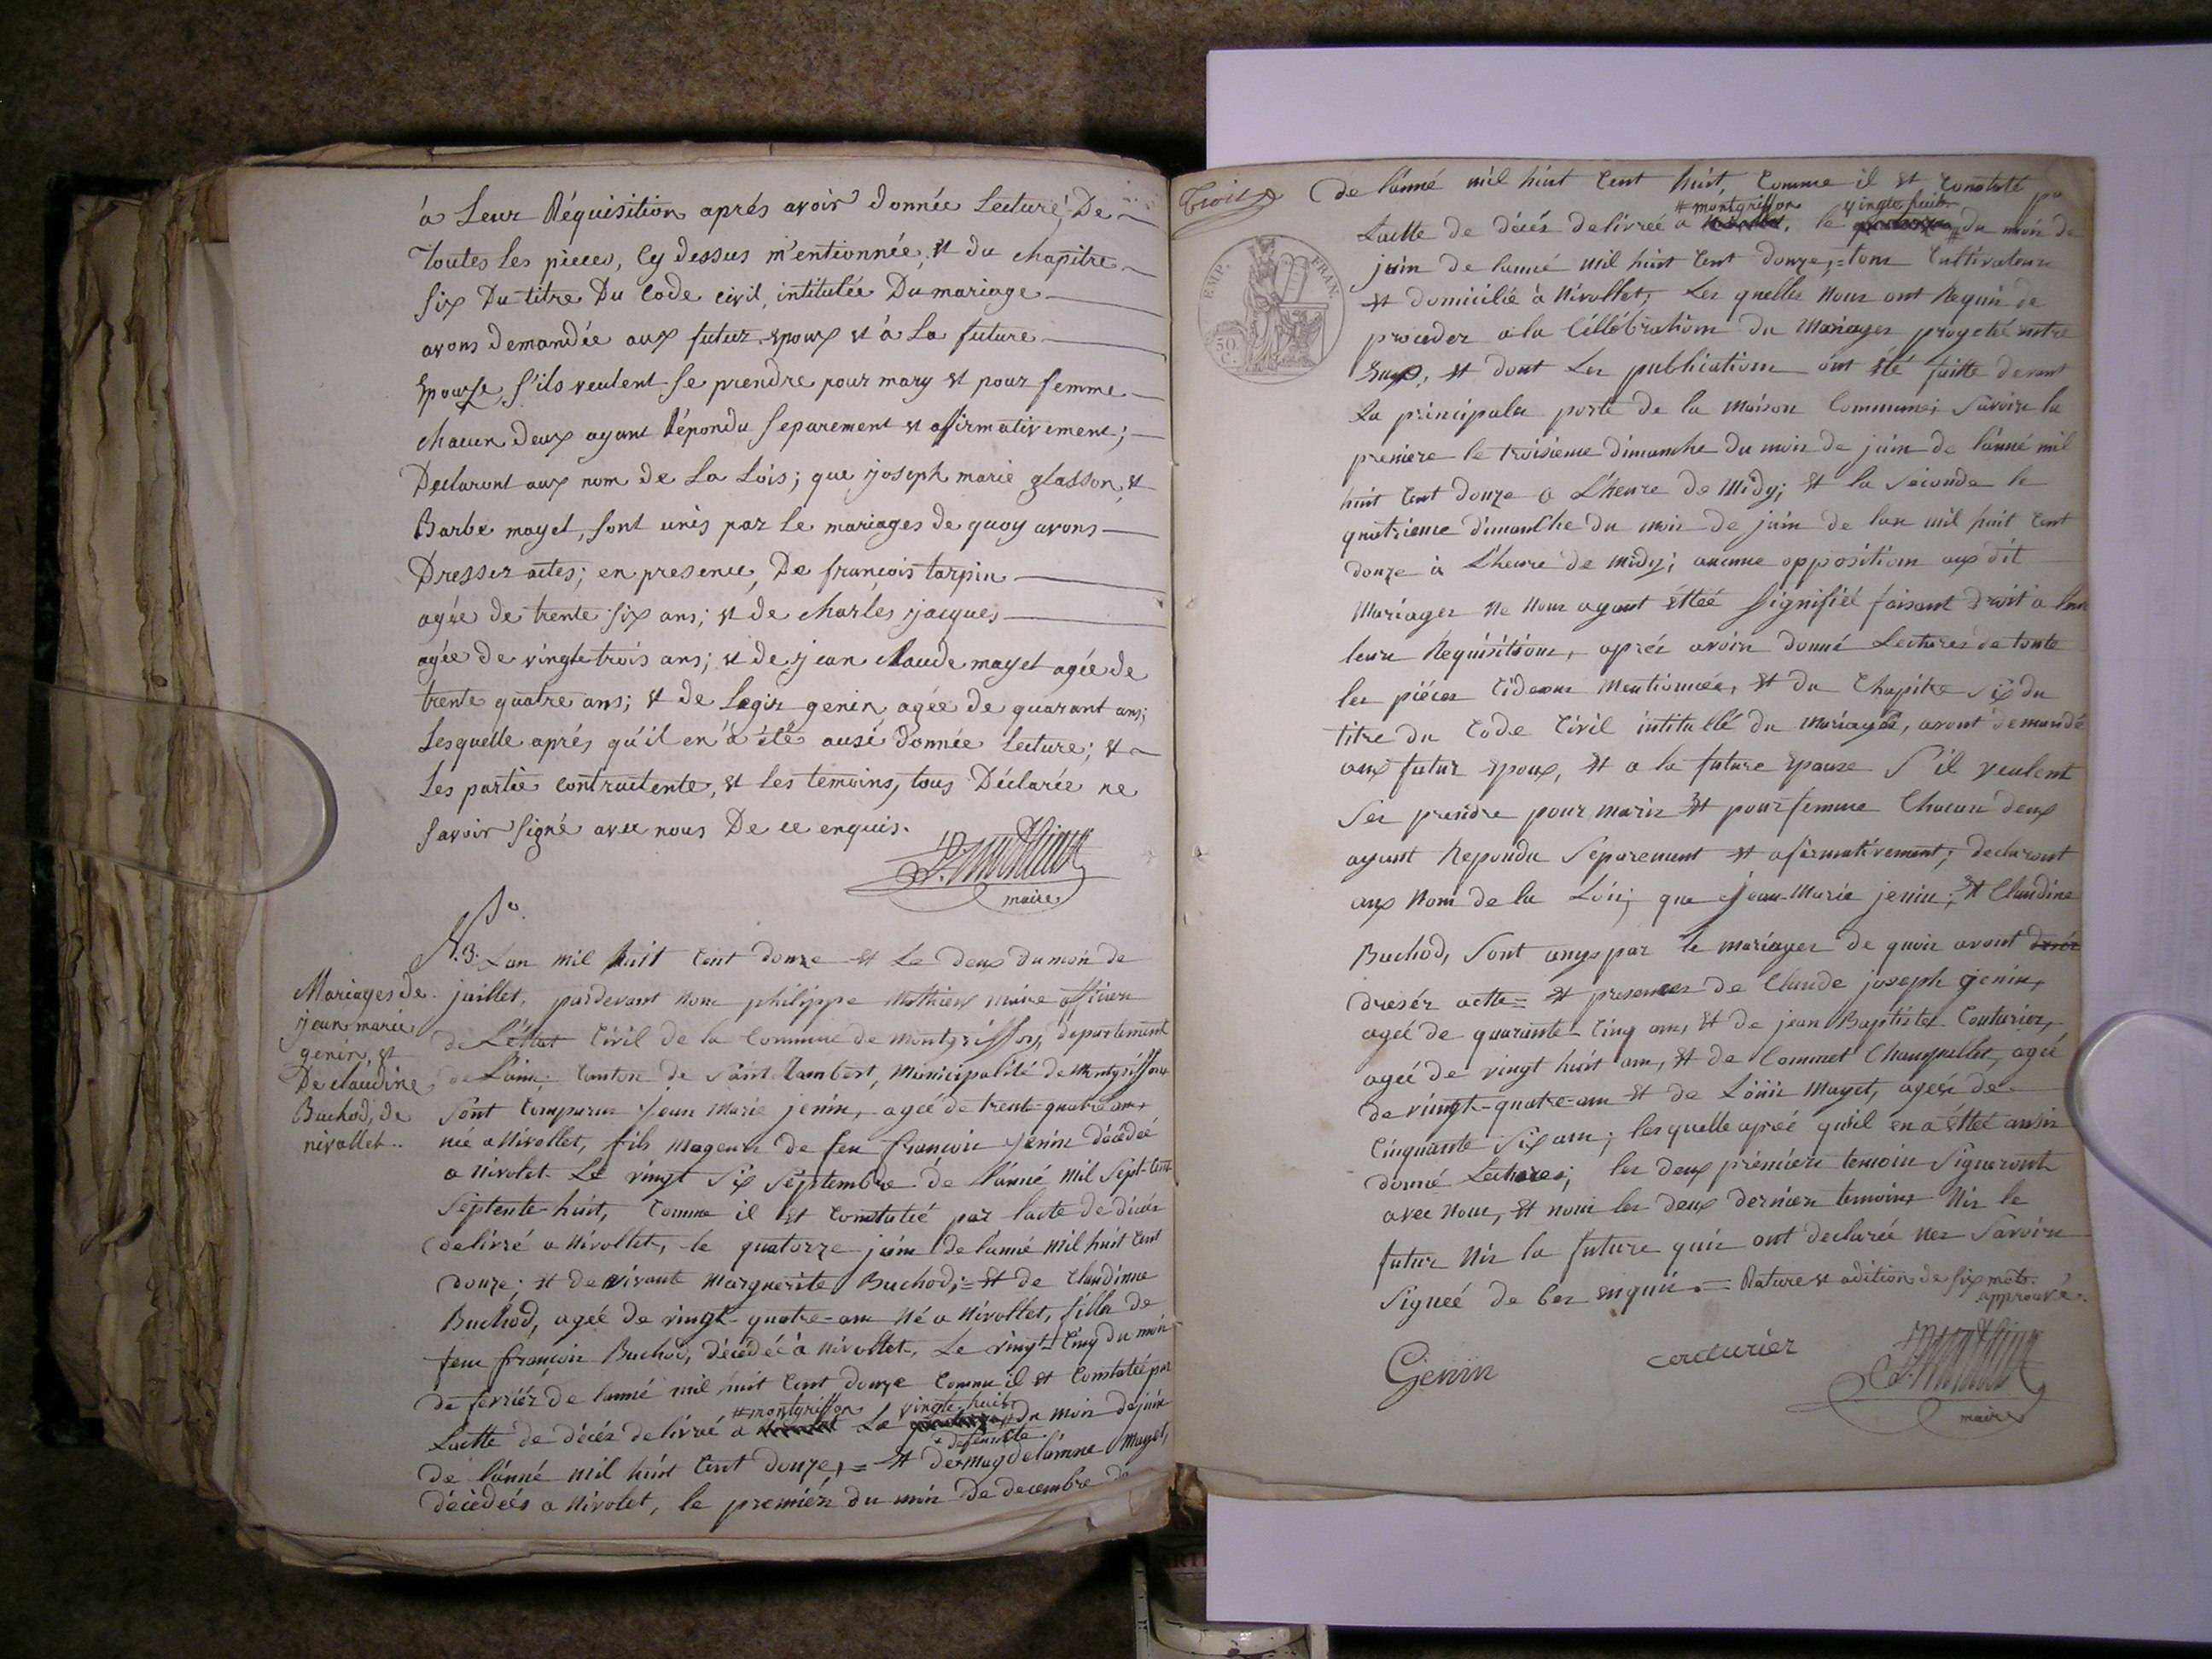 à Leur Réquisition aprés avoir donnée Lecture, De
Toutes Les pieces, Cy dessus m'entionnée, et du chapitre
six Du titre Du Code civil, intitulée Du mariage
avons demandée aux futur epoux et à La future
Epouse, s'ils veulent se prendre pour mary et pour femme
chacun Deux ayant Répondu separement et affirmativement;
Declaront aux nom de La Lois; que joseph marie glasson, et
Barbe mayet, sont unis par Le mariages de quoy avons
Dresser actes; en presence, De françois tarpin
agée de trente six ans; et de charles jacques
agée de vingte trois ans; et de jean claude mayet agée de
trente quatre ans; et de Legir genin agée de quarant ans;
Lesquelle aprés qu'il en'à été ausi donnée Lecture; et
Les partie contractente, et Les temoins, tous Déclarée ne
savoir signé avec nous De ce enquis.
maire
N.3.
Mariages de
jean marie
genin, et
De claudine
Buchod, de
nivollet..
Lan mil huit Cent douze et Le deux du mois de
juillet, pardevant nous philippe Mathieu maire officier
de L'éttat Civil de la Commune de montgriffon, departement
de Lain; Canton de saint Rambert, Municipalité de Montgriffon
sont Comparus jean Marie jenin, ageé de trente-quatre ans
née a Nivollet, fils mageur de feu françois jenin décédeé
a nivolet Le vingt Six Septembre de l'anné mil Sept-Cent
Septente-huit, Comme il et Constatié par lacte de décés
delivré a Nivollet, le quatorze juin de l'anné Mil huit Cent
douze; et de vivante Marguerite Buchod; = et de Claudinne
Buchod, ageé de vingt-quatre-ans Né a Nivollet, fille de
feu françois Buchod, décédéé à Nivollet, Le vingt Cinq du mois
de ferriér de lanné mil huit Cent douze Comme il et Constateé par
# montgriffon vingte huit
Lactte de décés delivré a Le # du mois de juin
+ defeunte
de l'anné mil huit Cent douze, = et de + magdelainne Mayet,
décédeés a Nivolet, le premiér du mois De decembre
Trois
EMP. FRAN.
50 C.
de l'anné mil huit Cent huit Comme il et Constaté
# montgriffon vingte huit
Lactte de décés delivreé a le du mois de
juin de lanné mil huit Cent douze, = tous Cultivateurs
et domicilié à Nivollet; Les quelles Nous ont Requis de
proceder a la Céllébration du Mariages progeté entre
Eux, et dont Les publications ont été faitte devant
La principale porte de la Maison Commune; Savoire la
premiere le troisieme dimanche du mois de juin de l'anné mil
huit Cent douze a L'heure de Midy; et la Séconde le
quatrieme dimanche du mois de juin de lan mil huit Cent
douze à L'heure de midy; aucunne opposition aux dit
Mariages Ne Nous ayant étteé signifieé faisant droit a
leurs Requisitions, aprés avoire donné Lectures de toute
les piéces Cidesus Mentionneés, et du Chapitre Six du
titre du Code Civil intitullé du Mariagée, avont demandé
aux futur epoux, et a la future epouse S'il veulent
Ses prendre pour maris et pour femme Chacun deux
ayant Repondu Séparement et afirmativement; declaront
aux Nom de la Loi; que jean-Marie jenin; et Claudine
Buchod, Sont unys par le mariages de quois avont
dresér actte = et presences de Claude joseph genin,
ageé de quarante-Cinq ans, et de jean Baptiste Couturier,
ageé de vingt huit ans, et de Commet Champellet, ageé
de vingt-quatre-ans et de Loüis Mayet, ageés de
Cinquante Six ans; lesquelle apreé qu'il en a éttet aussi
donné Lectures; les deux premiers temoin Signeront
avec Nous, et nom les deux dernier temoins Nis le
futur Nis la future quis ont declareé Nes Savoire
Signeé de Ces enquis. = Rature et adition de six mots
approuvé.
Genin
couturier
maire